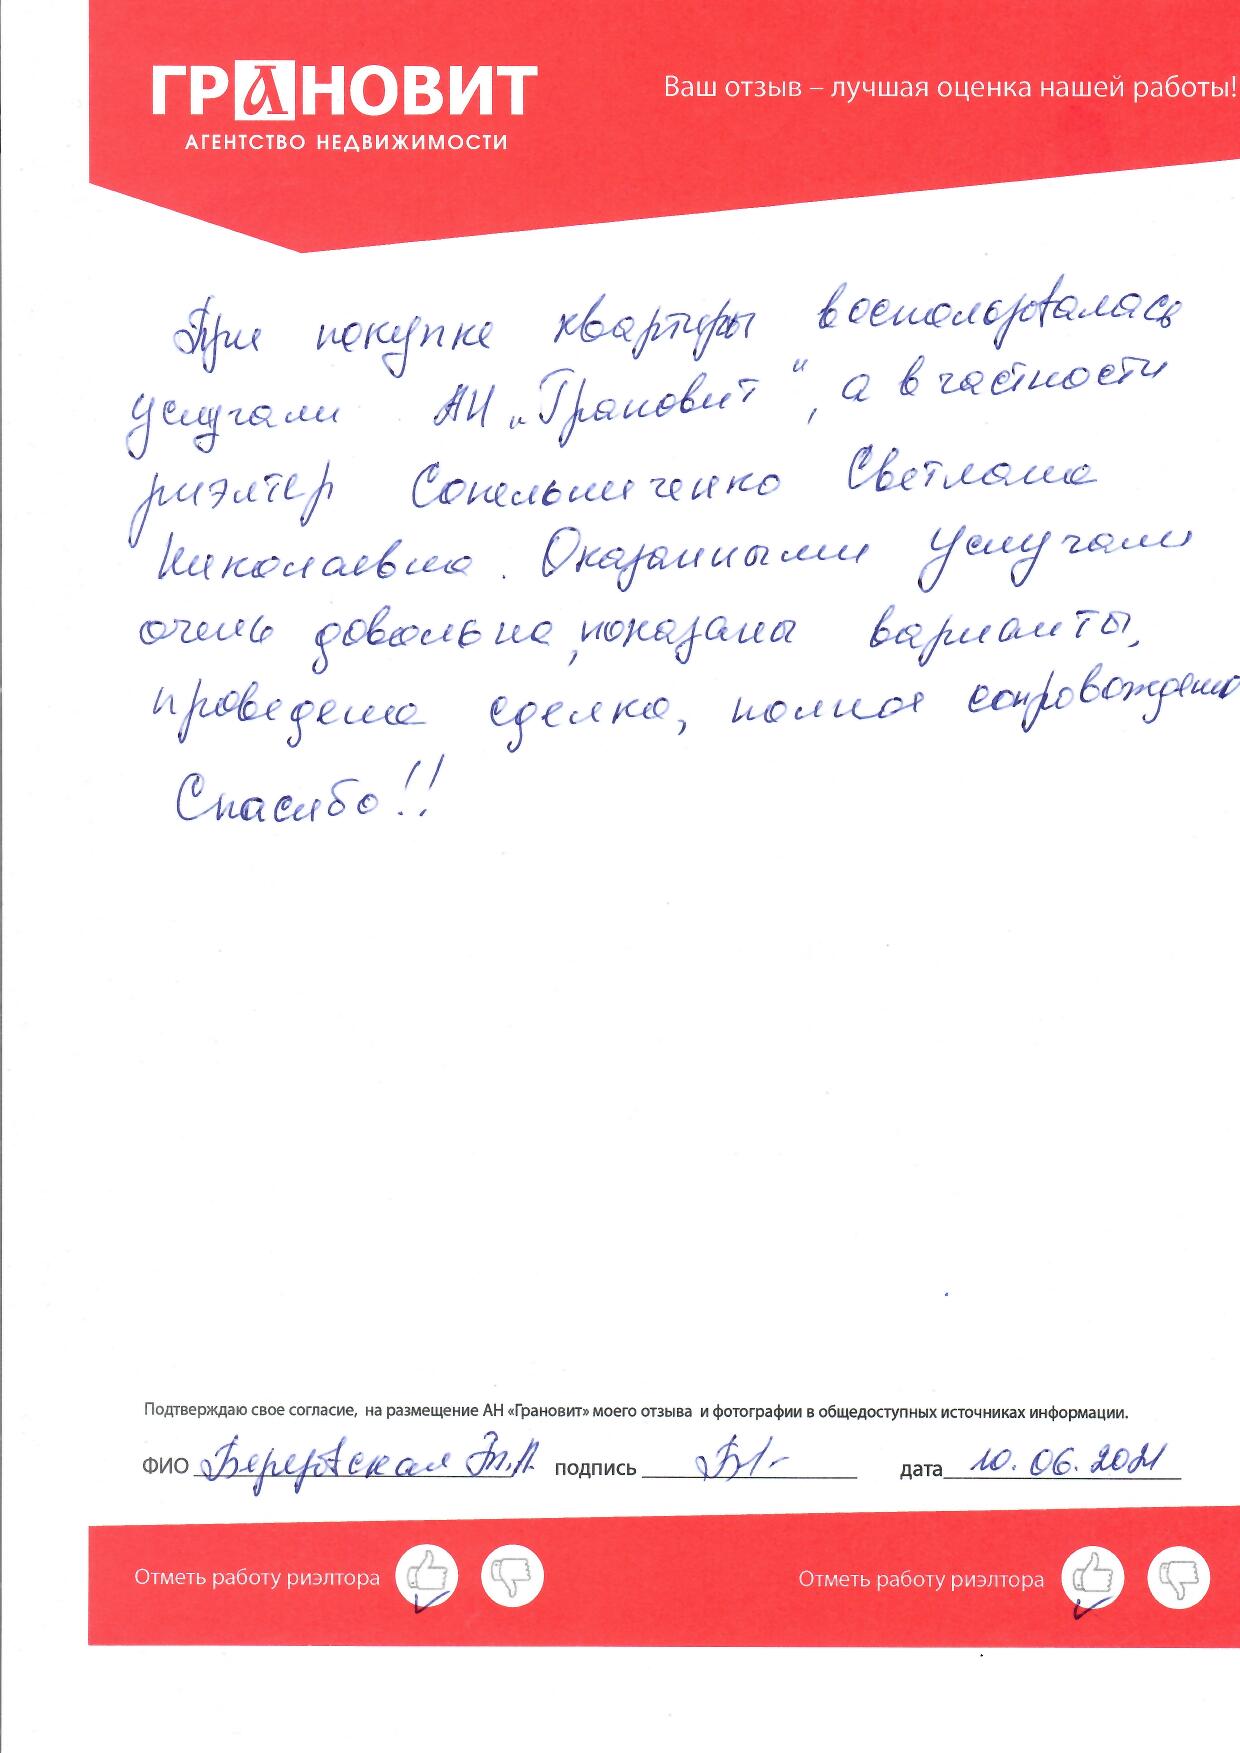 ГРАНОВИТ
АГЕНТСТВО НЕДВИЖИМОСТИ
Ваш отзыв – лучшая оценка нашей работы!
При покупке квартиры воспользовалась
услугами АН „Грановит“, а в частности
риэлтер Сопельниченко Светлана
Николаевна. Оказанными услугами
очень довольна, показаны варианты,
проведена сделка, полное сопровождение
Спасибо!!
Подтверждаю свое согласие, на размещение АН «Грановит» моего отзыва и фотографии в общедоступных источниках информации.
ФИО подпись дата 10.06.2021
Отметь работу риэлтора
Отметь работу риэлтора